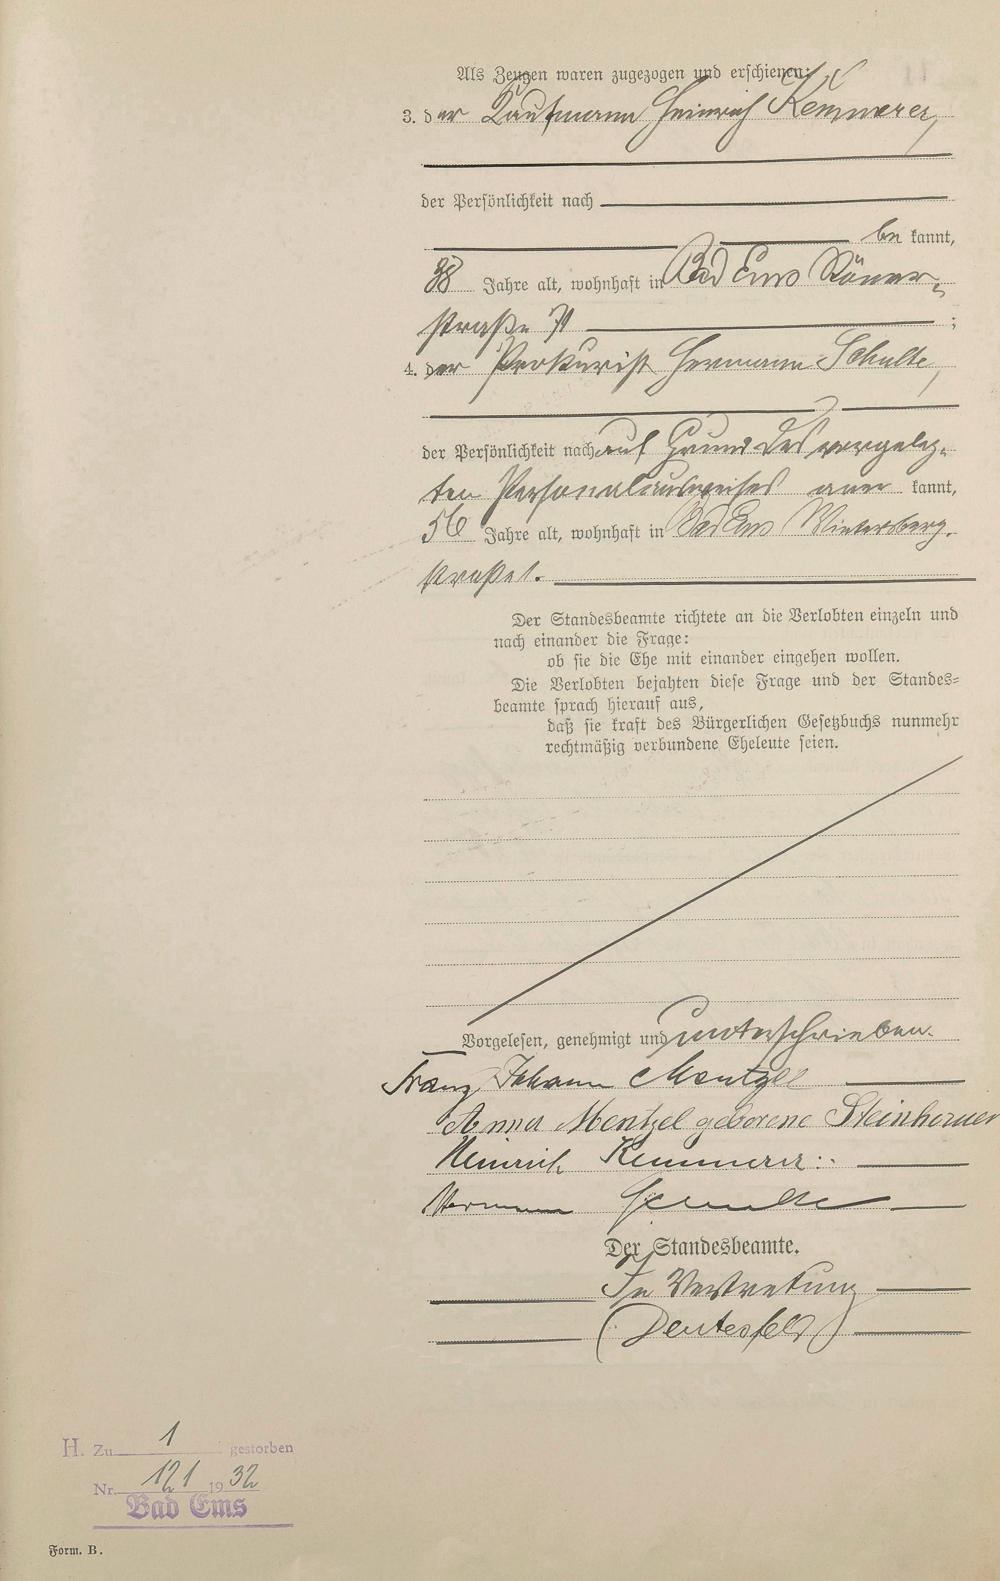 Als Zeugen waren zugezogen und erschienen:
3. der Kaufmann Heinrich Kemmerer,
der Persönlichkeit nach
be kannt,
38 Jahre alt, wohnhaft in Bad Ems Römer-
straße 71 ;
4. der Prokurist Hermann Schulte,
der Persönlichkeit nach auf Grund des vorgeleg-
ten Personalausweises aner kannt,
56 Jahre alt, wohnhaft in Bad Ems Wintersberg-
straße 1.
Der Standesbeamte richtete an die Verlobten einzeln und
nach einander die Frage:
ob sie die Ehe mit einander eingehen wollen.
Die Verlobten bejahten diese Frage und der Standes-
beamte sprach hierauf aus,
daß sie kraft des Bürgerlichen Gesetzbuchs nunmehr
rechtmäßig verbundene Eheleute seien.
Vorgelesen, genehmigt und unterschrieben.
Franz Johann Mentzel
Anna Mentzel geborene
Heinrich Kemmerer
Hermann Schulte
Der Standesbeamte.
In Vertretung
H. Zu 1 gestorben
Nr. 121 1932
Bad Ems
Form. B.